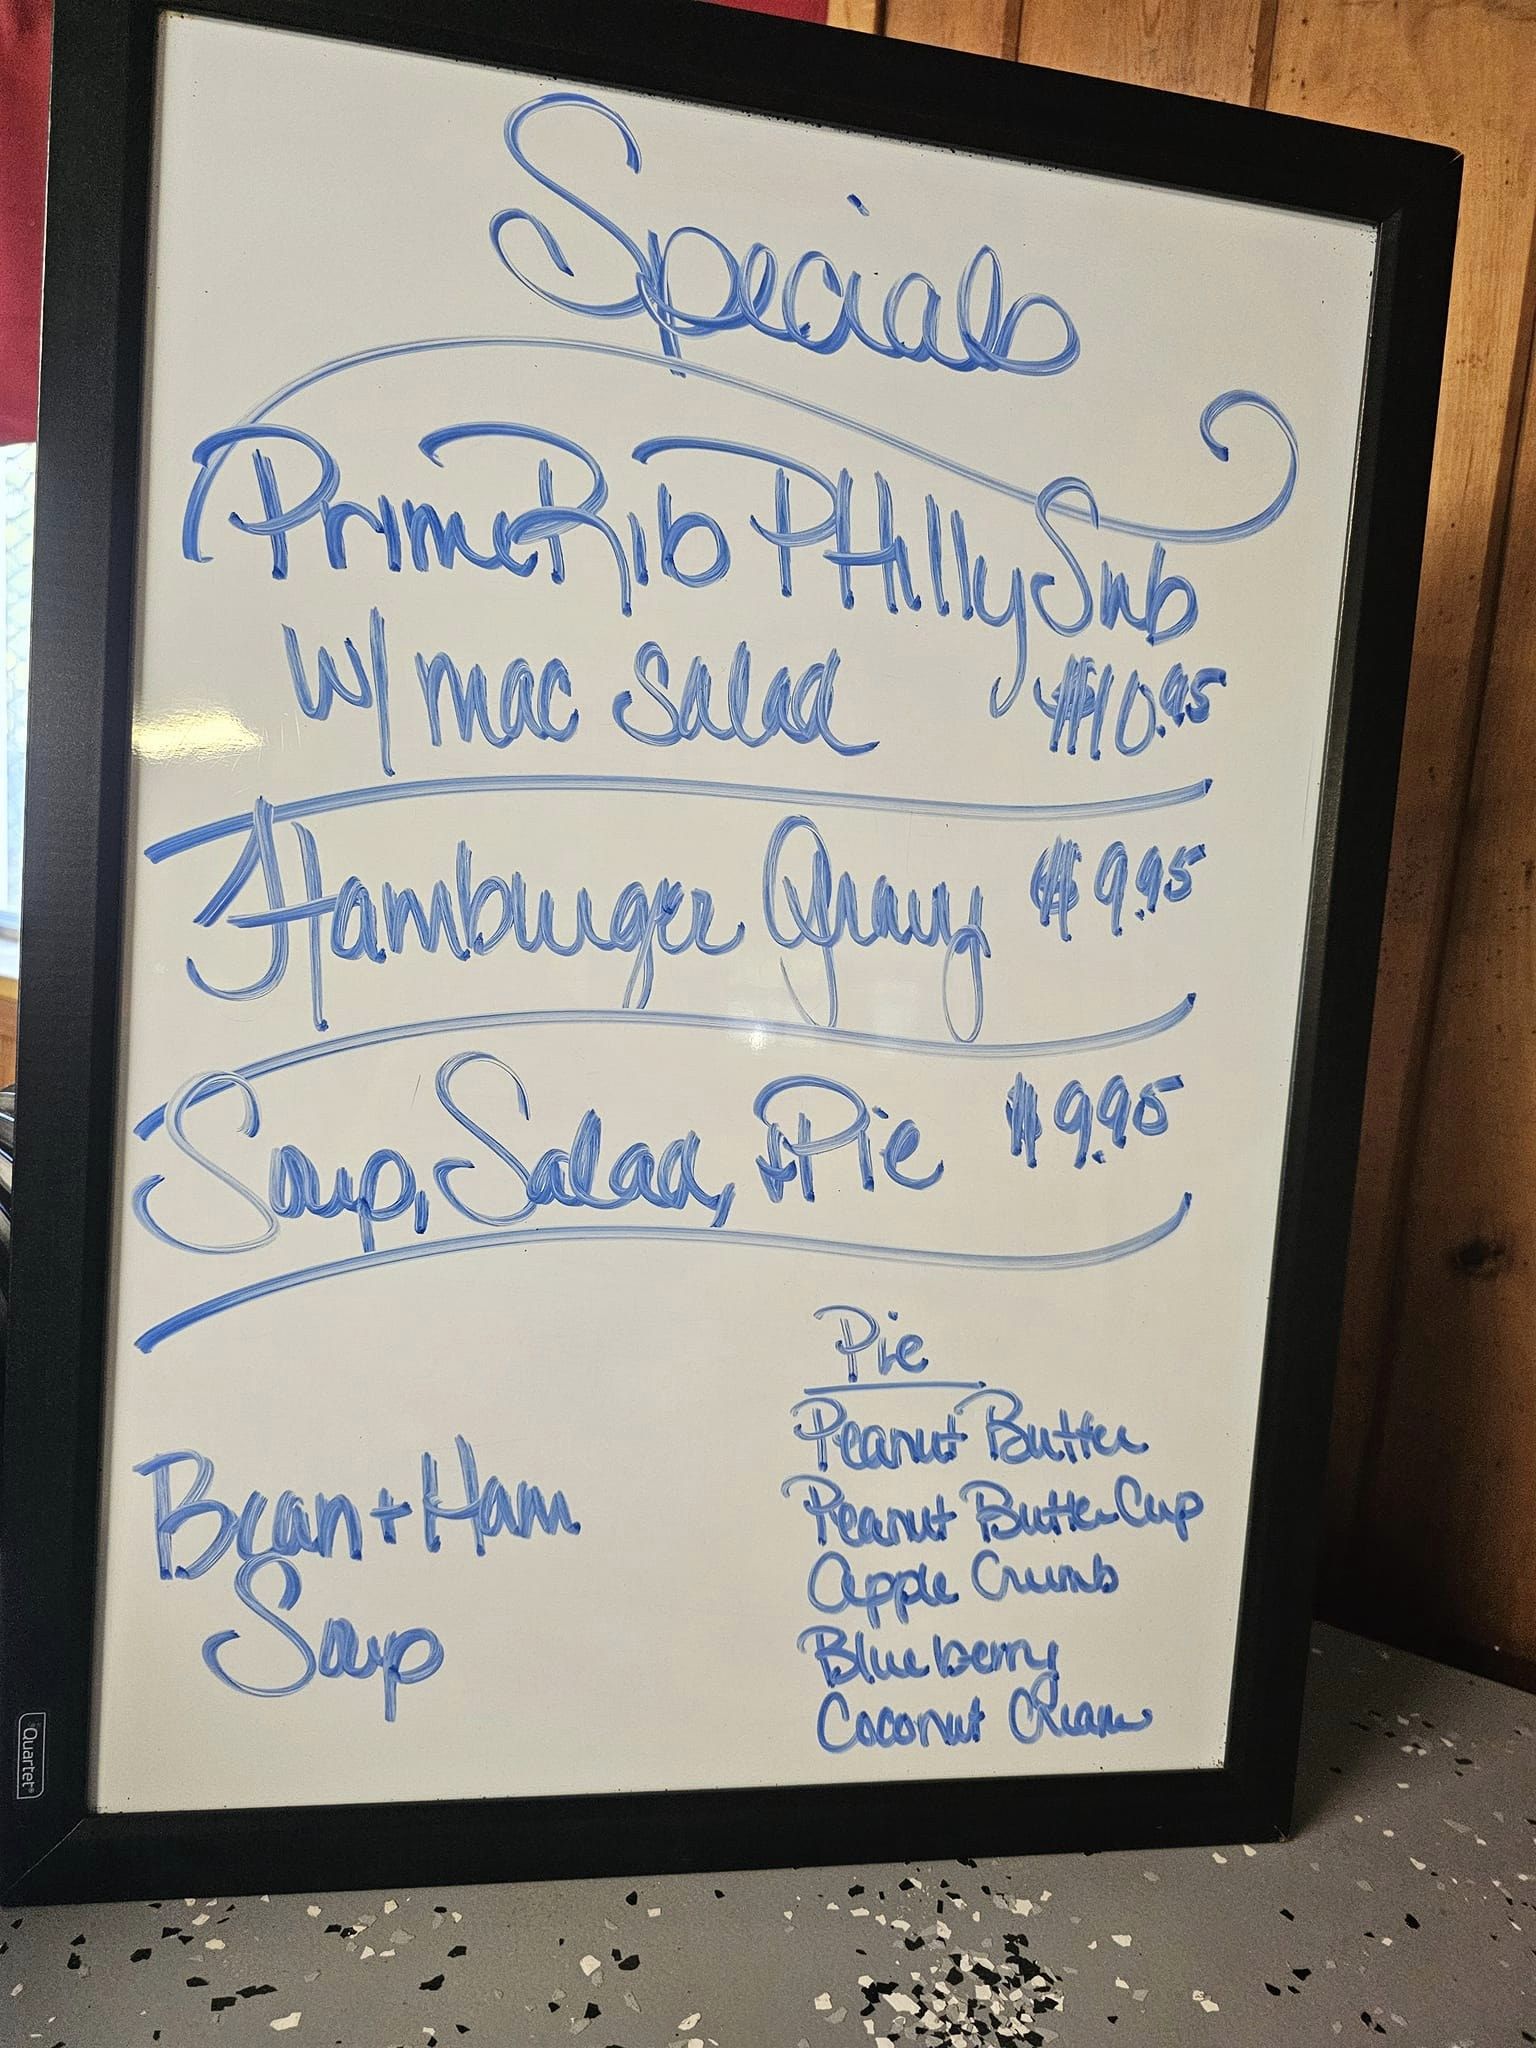 Specials
Prime Rib PHilly Sub
w/ mac salad $10.95
Hamburger Gravy $9.95
Soup, Salad, + Pie $9.95
Pie
Peanut Butter
Peanut Butter Cup
Apple Crumb
Blueberry
Coconut Cream
Bean + Ham
Soup
Quartet®